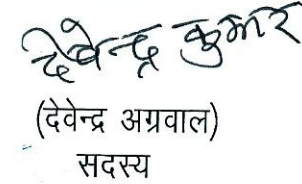 देवेन्द्र कुमार
(देवेन्द्र अग्रवाल)
सदस्य